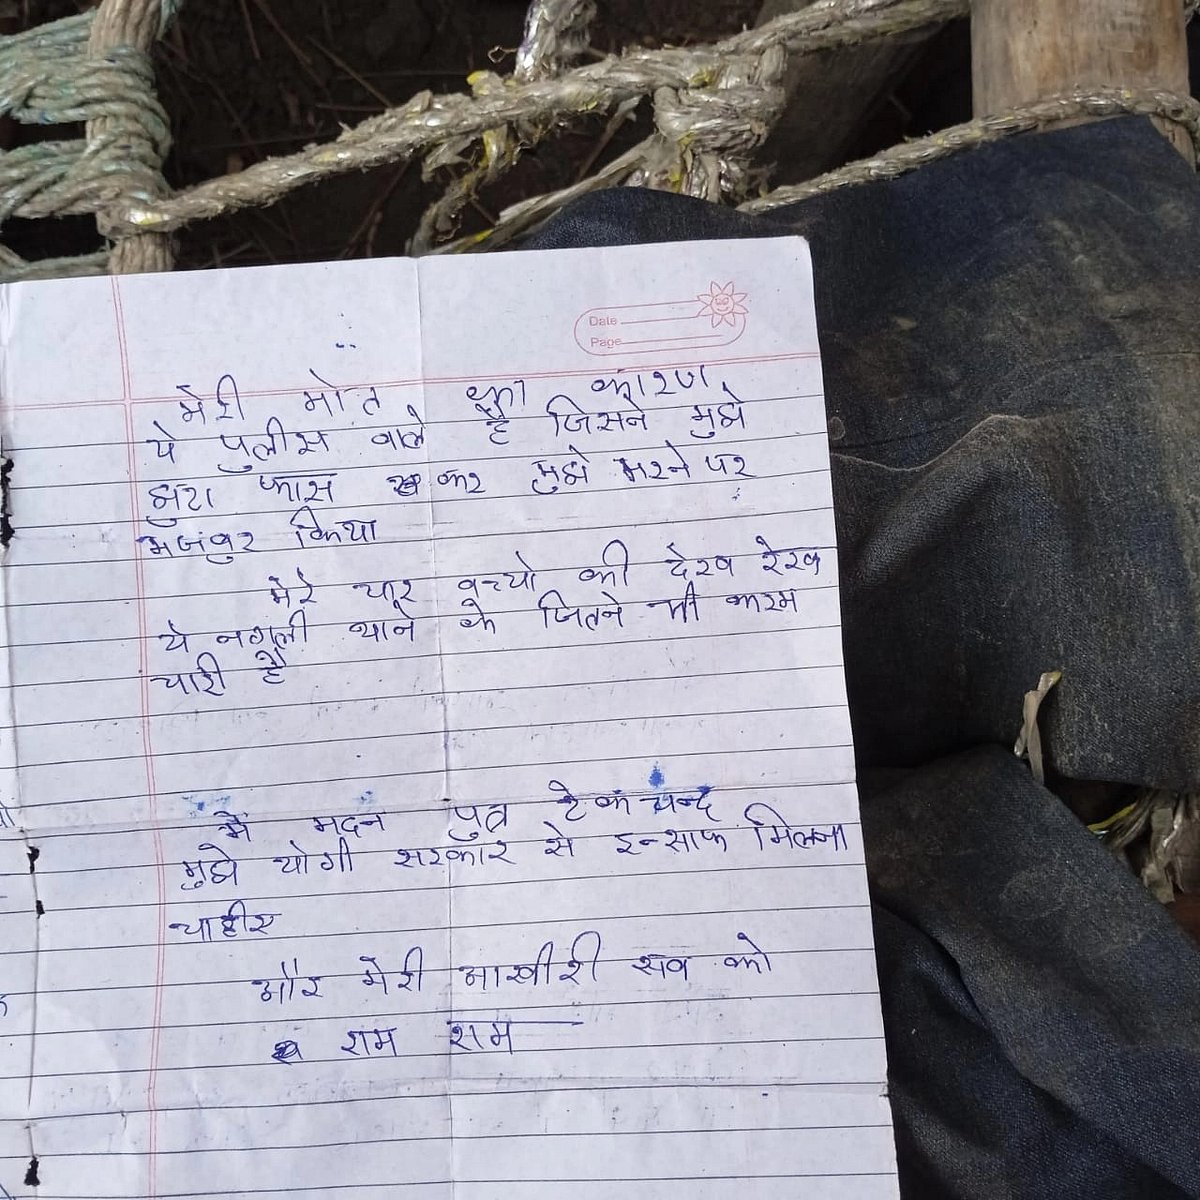 Date
Page
मेरी मोत का कारण
ये पुलीस वाले है जिसने मुझे
झुटा फास कर मुझे मरने पर
मजंबुर किया
मेरे चार बच्चो की देख रेख
ये नगली थाने के जितने भी करम
चारी है
में मदन पुत्र टेकंचन्द
मुझे योगी सरकार से इन्साफ मिलना
चाहीए
और मेरी आखीरी सब को
राम राम